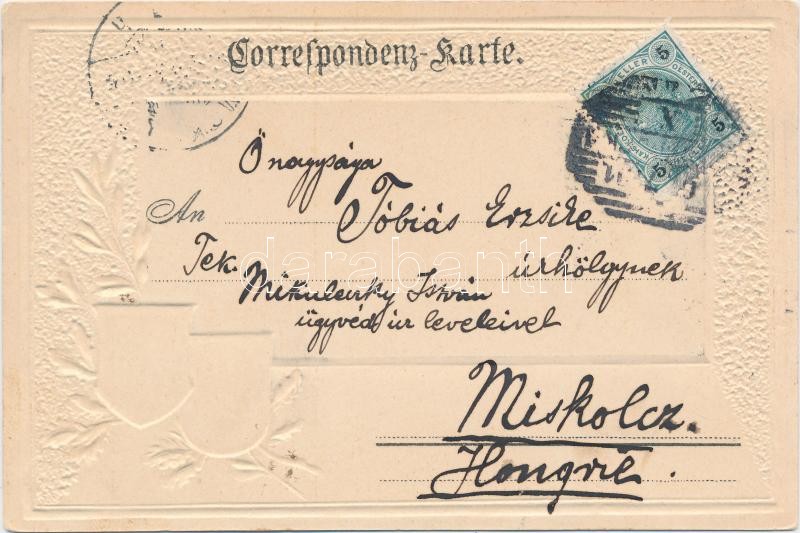 Correspondenz-Karte.
5 HELLER 5
Ő nagysága
An Tóbiás Erzsike
úrhölgynek
Tek. Mikuleczky István
ügyvéd úr leveleivel
Miskolcz.
Hongrie.
darabanth